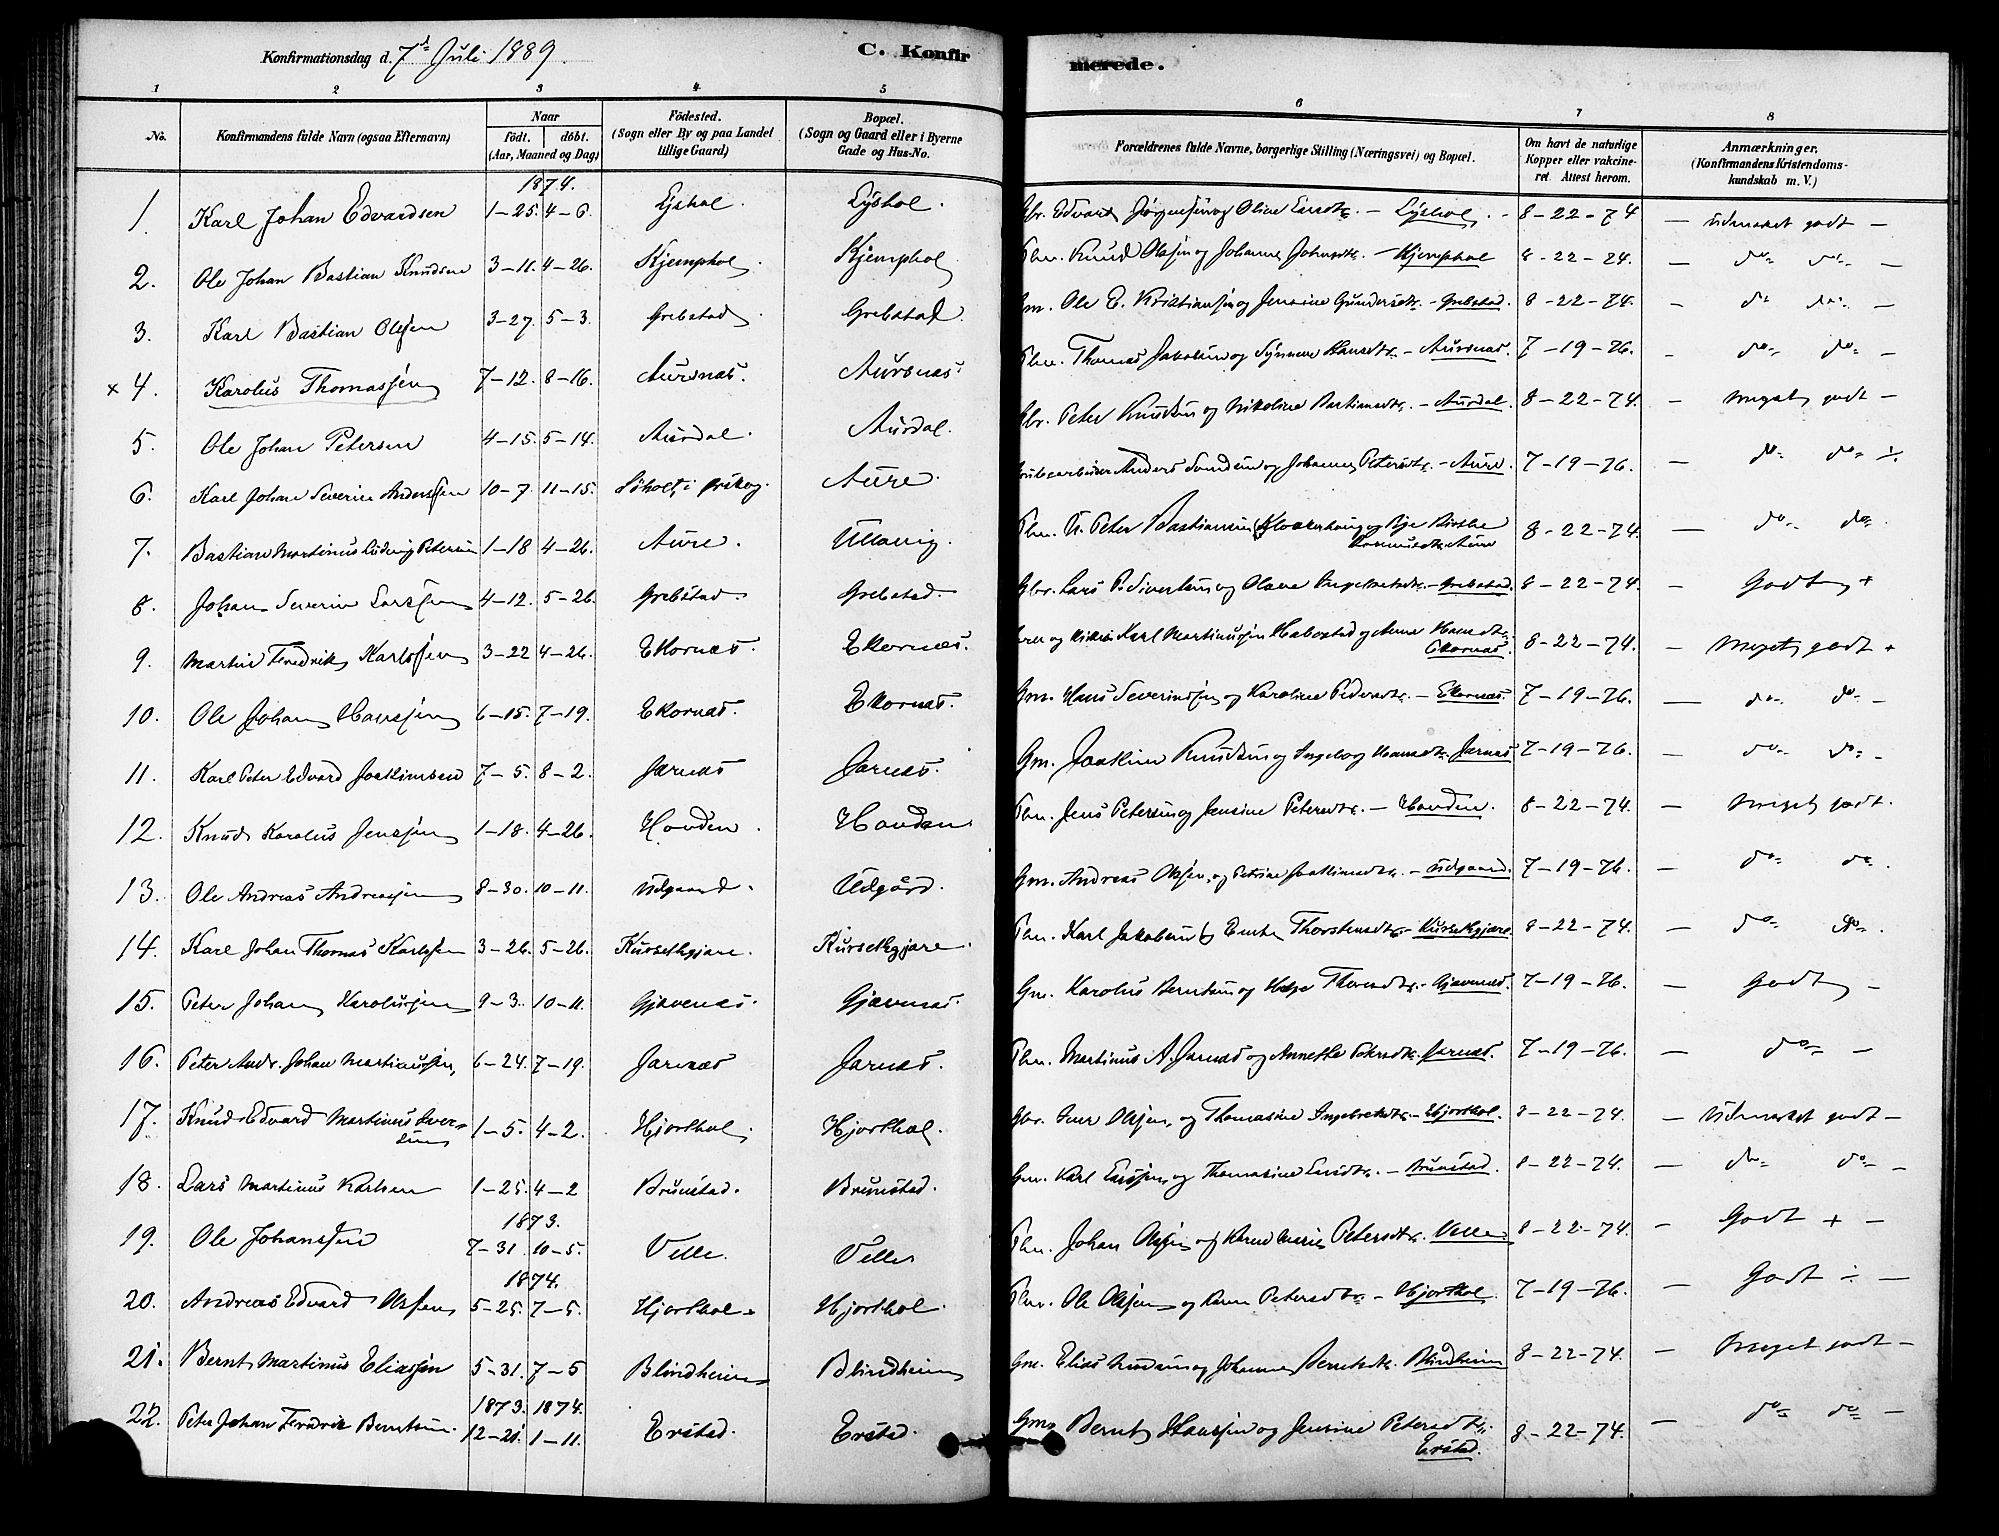 Konfirmationsdag d. 7d Juli 1889. C. Konfirmerede.
1 2 3 4 5 6 7 8
No. Konfirmandens fulde Navn (ogsaa Efternavn) Naar födt. döbt. (Aar, Maaned og Dag) Födested. (Sogn eller By og paa Landet tillige Gaard) Bopæl. (Sogn og Gaard eller i Byerne Gade og Hus-No. Forældrenes fulde Navne, borgerlige Stilling (Næringsvei) og Bopæl. Om havt de naturlige Kopper eller vakcineret. Attest herom. Anmærkninger. (Konfirmandens Kristendomskundskab m. V.)
1874.
1. Karl Johan Edvardsen 1-25. 4-6. Lyshol. Lyshol. Gbr. Edvard Jørgensen og Oline - Lyshol. 8-22-74 - Udmærket godt -
2. Ole Johan Bastian Knudsen 3-11. 4-26. Kjemphol. Kjemphol. Knud Olsen og Johanne - Kjemphol 8-22-74. - do do -
3. Karl Bastian Olsen 3-27. 5-3. Grebstad Grebstad. Gm. Ole E. Kristiansen og Jensine Gundersdtr. - Grebstad. 8-22-74. - do do -
x 4. Karolus Thomassen 7-12. 8-16. Aursnæs. Aursnæs. Thomas Jakobsen og Synneve Hansdtr. - Aursnæs. 7-19-76. - do do -
5. Ole Johan Petersen 4-15. 5-14. Aurdal. Aurdal. Gbr. Peter Knudsen og Nikoline Bastiansdtr. - Aurdal. 8-22-74. - Meget godt -
6. Karl Johan Severin Anderssen 10-7. 11-15. Søholt, i Ørskog. Aure. Anders og Johanne Petersdtr. - Aure. 7-19-76. - do do ÷
7. Bastian Martinus Ludvig Petersen 1-18 4-26. Aure. Ullavig. Peter Bastiansen og Aure 8-22-74. - do do.
8. Johan Severin Larssen 4-12. 5-26. Grebstad. Grebstad Gbr. Lars P. Sivertsen og Olave - Grebstad. 8-22-74. - Godt +
9. Martin Fredrik Karlssen 3-22 4-26. Ekornæs. Ekornæs. Karl Martinussen og Anne Hansdtr. Ekornæs. 8-22-74. - Meget godt +
10. Ole Johan Hanssen 6-15. 7-19. Ekornæs. Ekornæs. Gm. Hans Severinssen og Karoline Pedersdtr. - Ekornæs. 7-19-76. - do do -
11. Karl Peter Edvard Joakimsen 7-5. 8-2. Jarnæs Jarnæs. Gm. Joakim Knudsen og Ingeborg Hansdtr. Jarnæs 7-19-76. - do do -
12. Knud Karolus Jenssen 1-18. 4-26. Hovden. Hovden Jens Petersen og Jensine Petersdtr. - Hovden. 8-22-74. - Meget godt.
13. Ole Andreas Andreassen 8-30. 10-11. Udgaard. Udgård. Gm. Andreas Olsen, og Petrine Joakimsdtr. - Udgaard. 7-19-76. - do do.
14. Karl Johan Thomas Karlssen 3-26. 5-26. Kursetkgjære. Kursetkgjære. Karl Jakobsen Thorstensdtr. - Kursetkgjære 8-22-74. - do do.
15. Peter Johan Karolussen 9-3. 10-11. Gjævenæs. Gjævenæs. Gm. Karolus Berntsen og - Gjævenæs. 7-19-76. - Godt -
16. Peter Andr. Johan Martinussen, 6-24. 7-19. Jarnæs Jarnæs. Martinus A. Jarnæs og Annette Jarnæs. 7-19-76. - do -
17. Knud Edvard Martinus Iversen 1-5. 4-2. Hjorthol. Hjorthol. Gbr. Iver Olsen, og Thomasine Ingebretsdtr. - Hjorthol. 8-22-74. - Udmærket godt -
18. Lars Martinus Karlsen 1-25. 4-2 Brunstad. Brunstad. Gm. Karl og Thomasine - Brunstad. 8-22-74. - do do -
1873.
19. Ole Johanssen 7-31. 10-5. Velle. Velle Johan Olsen og Karen Marie Petersdtr. Velle 8-22-74. - Godt + -
1874.
20. Andreas Edvard Olssen 5-25. 7-5. Hjorthol. Hjorthol. Ole Olsen og Petersdtr - Hjorthol. 7-19-76. - Godt ÷ -
21. Bernt Martinus Eliassen 5-31. 7-5 Blindheim Blindheim Gm. Elias Knudsen og Johanne Berntsdtr. Blindheim 8-22-74. - Meget godt -
1873. 1874.
22. Peter Johan Fredrik Berntsen. 12-21. 1-11. Erstad. Erstad. Gm. Bernt Hanssen og Jensine Petersdtr. Erstad. 8-22-74. - do do -